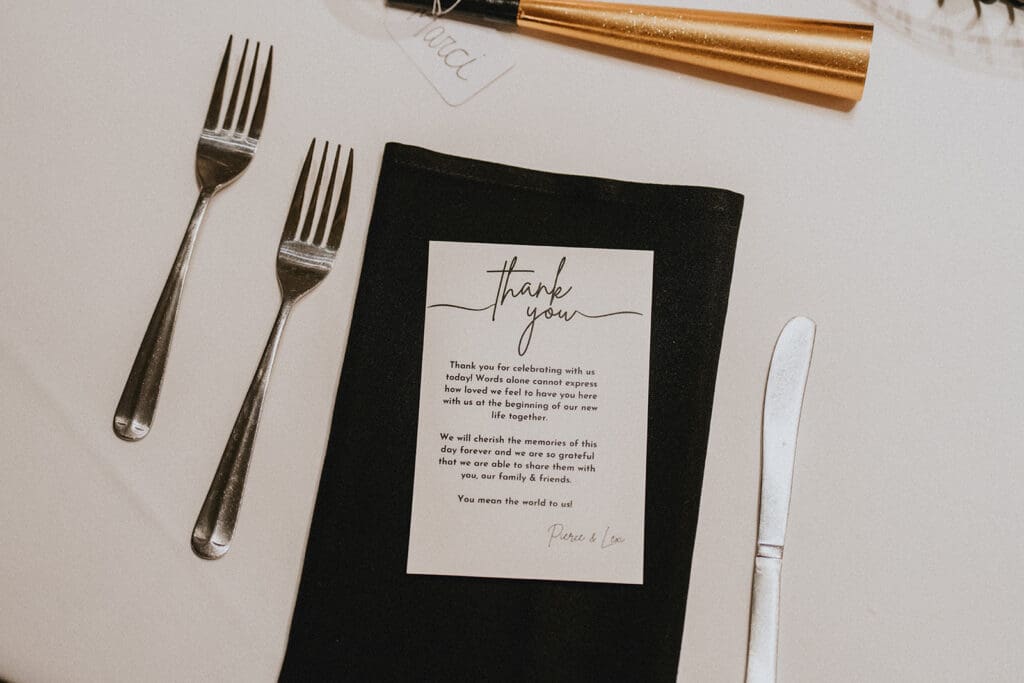 Marci
thank
you
Thank you for celebrating with us
today! Words alone cannot express
how loved we feel to have you here
with us at the beginning of our new
life together.
We will cherish the memories of this
day forever and we are so grateful
that we are able to share them with
you, our family & friends.
You mean the world to us!
Pierce & Lexi